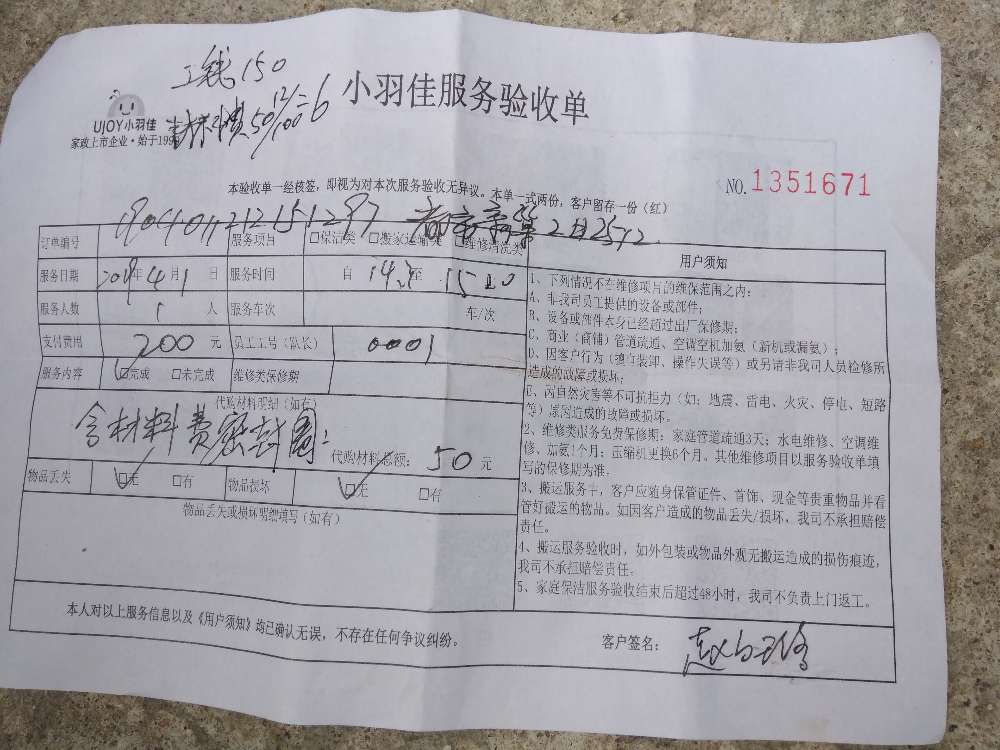 工钱150
材料费50 12/100=6
小羽佳服务验收单
UJOY小羽佳
家政上市企业·始于199
NO.1351671
本验收单一经核签，即视为对本次服务验收无异议。本单一式两份，客户留存一份（红）
订单编号 服务项目 □保洁类 □搬家运输类 □维修清洗类
服务日期 2019年4月1日 服务时间 自 至 15
服务人数 1人 服务车次 车/次
支付费用 200元 员工工号（队长） 0001
服务内容 ☑完成 □未完成 维修类保修期
代购材料明细（如有）
含材料费密封圈：
代购材料总额：50元
物品丢失 ☑无 □有 物品损坏 ☑无 □有
物品丢失或损坏明细填写（如有）
用户须知
1、下列情况不在维修项目的维保范围之内：
A、非我司员工提供的设备或部件；
B、设备或部件本身已经超过出厂保修期；
C、商业（商铺）管道疏通、空调空机加氨（新机或漏氨）；
D、因客户行为（擅自装卸、操作失误等）或另请非我司人员检修所
造成的故障或损坏；
E、因自然灾害等不可抗拒力（如：地震、雷电、火灾、停电、短路
等）原因造成的故障或损坏。
2、维修类服务免费保修期：家庭管道疏通3天；水电维修、空调维
修、加氨1个月；压缩机更换6个月。其他维修项目以服务验收单填
写的保修期为准；
3、搬运服务中，客户应随身保管证件、首饰、现金等贵重物品并看
管好搬运的物品。如因客户造成的物品丢失/损坏，我司不承担赔偿
责任。
4、搬运服务验收时，如外包装或物品外观无搬运造成的损伤痕迹，
我司不承担赔偿责任。
5、家庭保洁服务验收结束后超过48小时，我司不负责上门返工。
本人对以上服务信息以及《用户须知》均已确认无误，不存在任何争议纠纷。
客户签名：